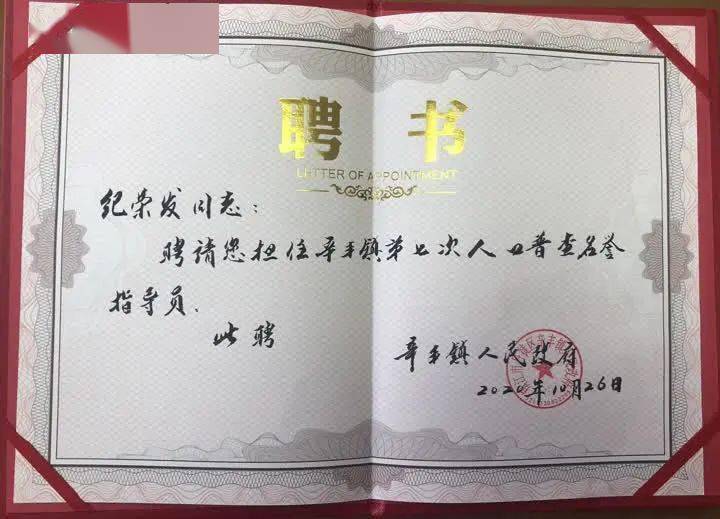 聘 书
LETTER OF APPOINTMENT
纪荣发同志：
聘请您担任辛丰镇第七次人口普查名誉
指导员.
此聘
辛丰镇人民政府
2020年10月26日